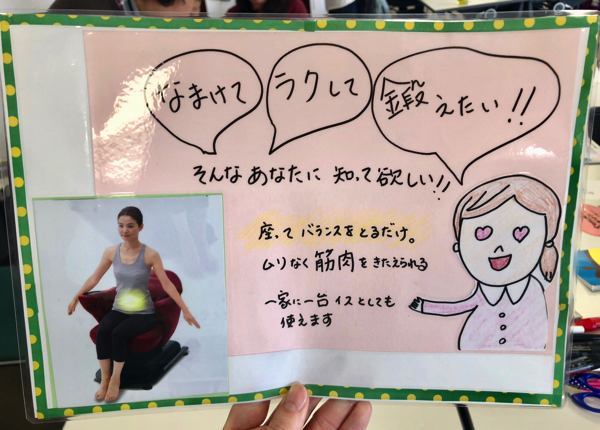 なまけて
ラクして
鍛えたい!!
そんなあなたに知って欲しい!!
座ってバランスをとるだけ。
ムリなく筋肉をきたえられる
一家に一台イスとしても
使えます